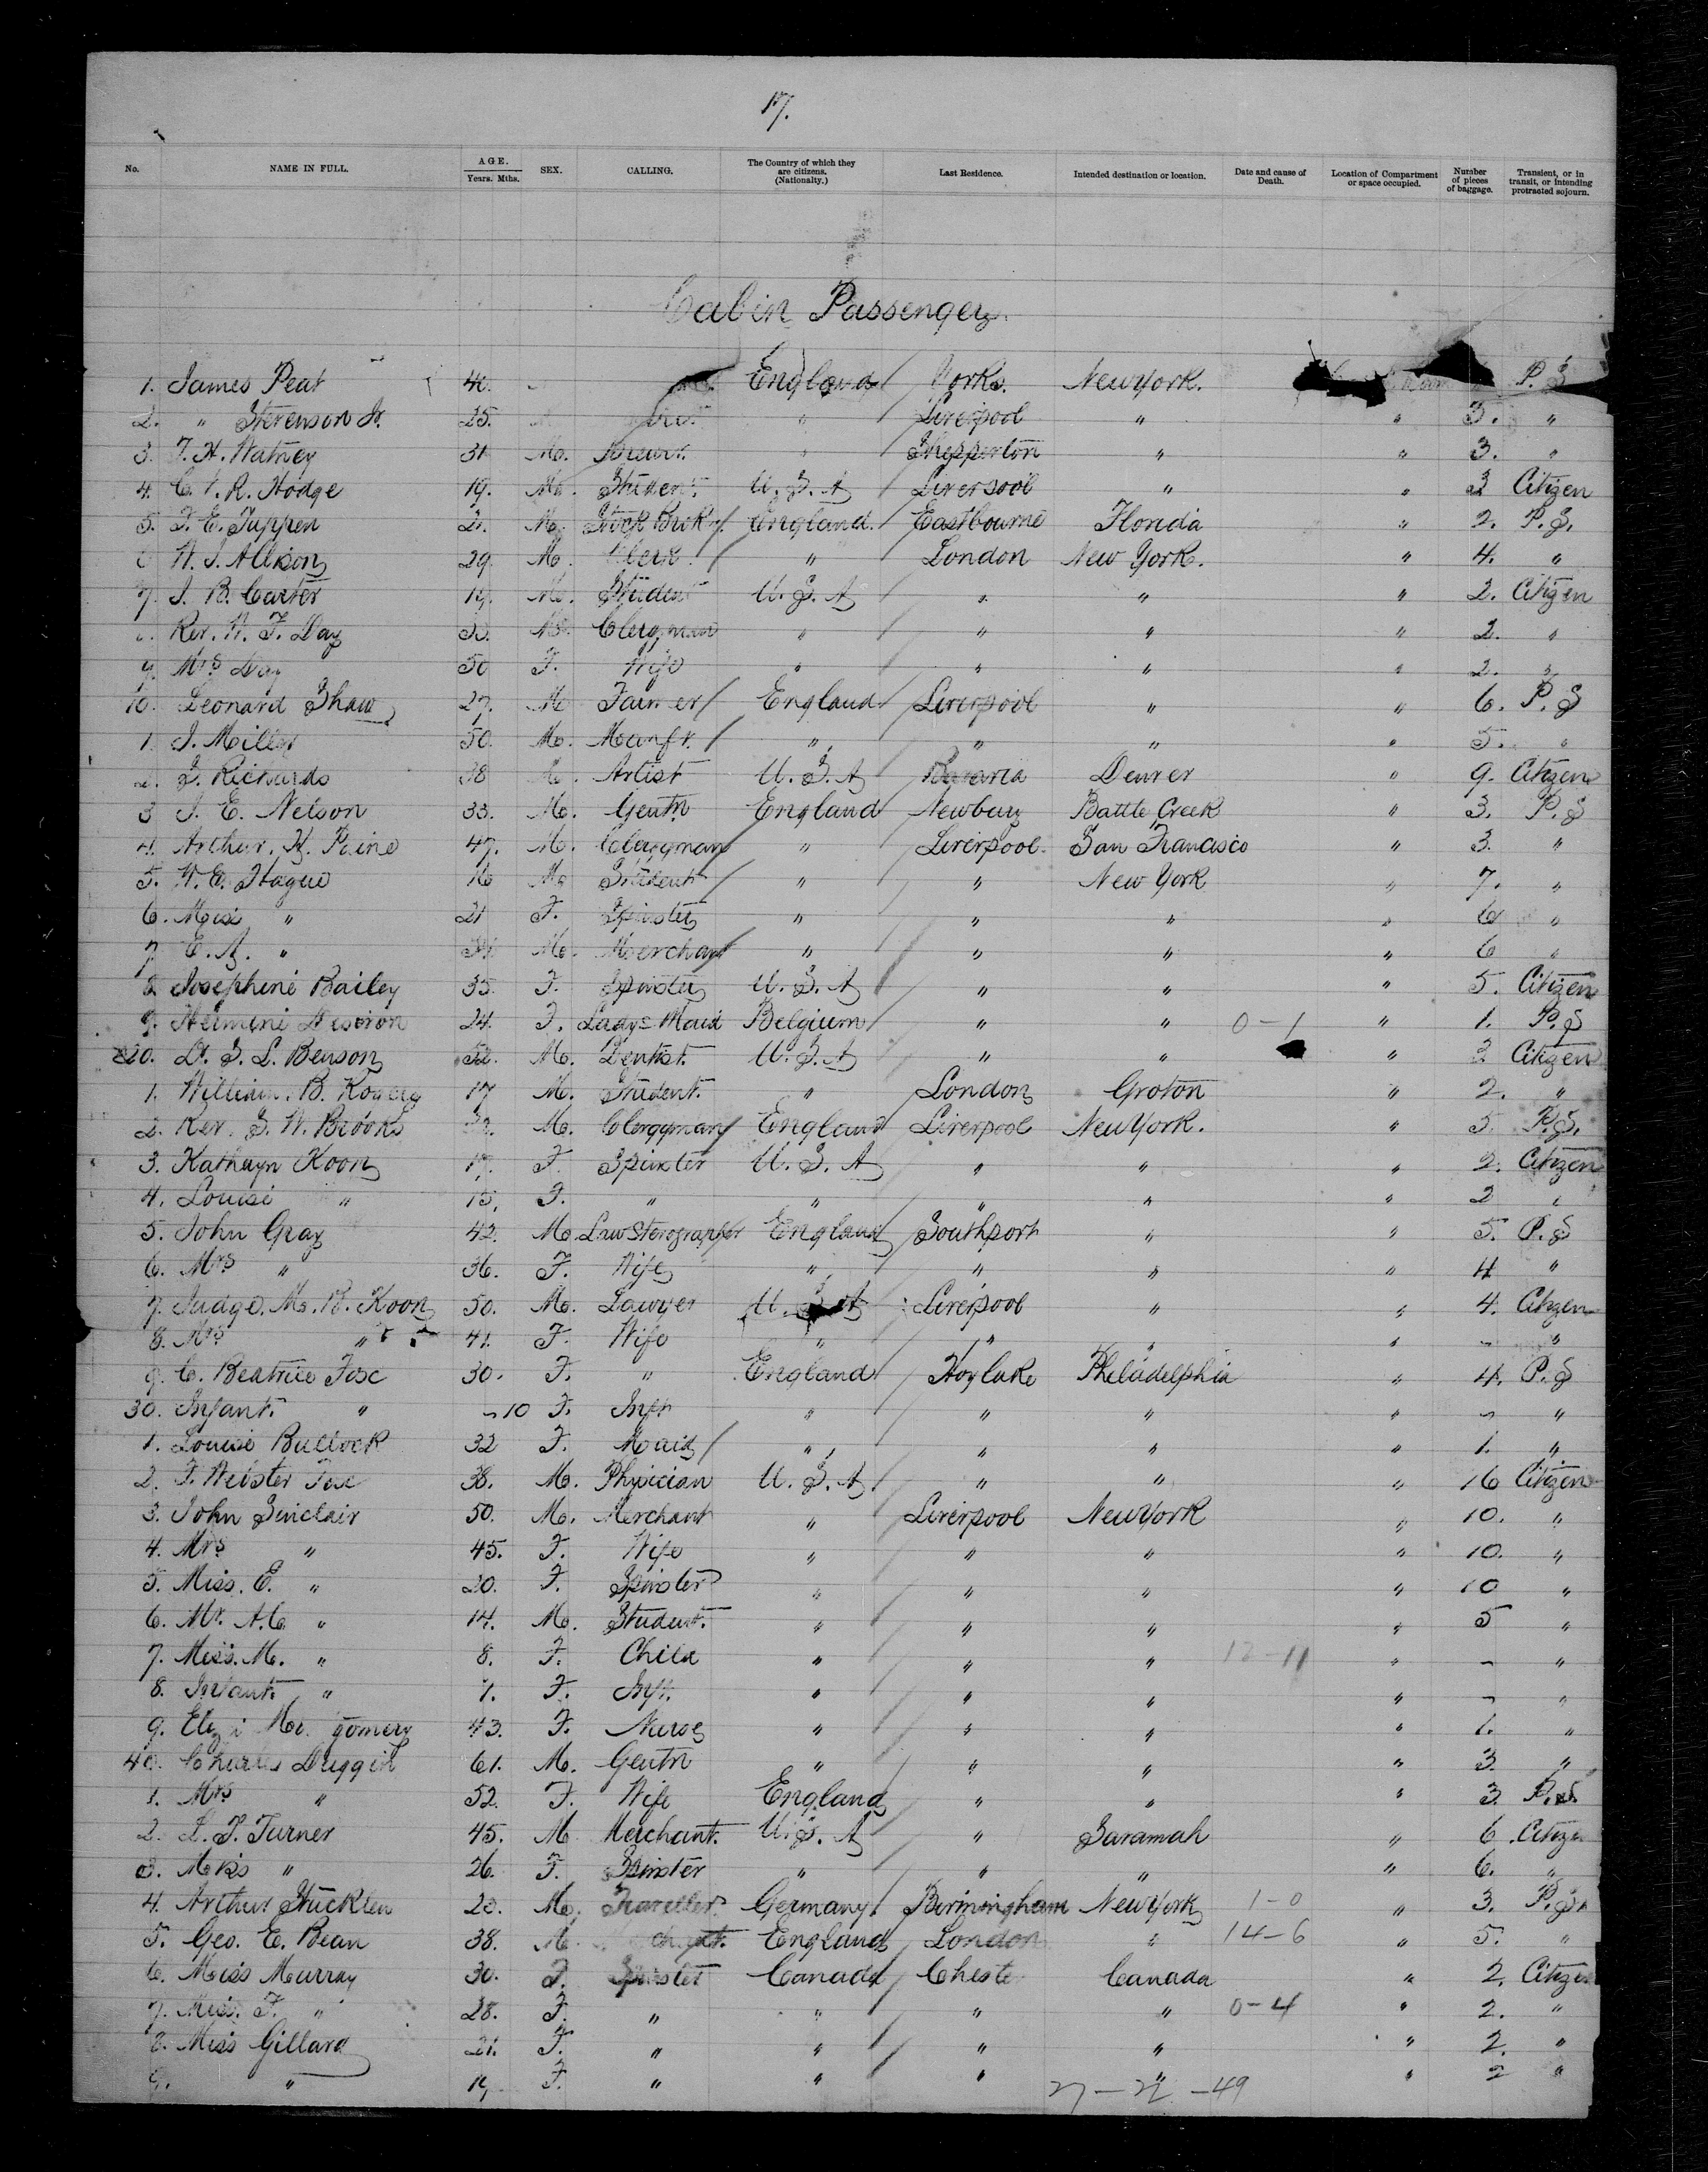 17.
No. NAME IN FULL. AGE. Years. Mths. SEX. CALLING. The Country of which they are citizens. (Nationality.) Last Residence. Intended destination or location. Date and cause of Death. Location of Compartment or space occupied. Number of pieces of baggage. Transient, or in transit, or intending protracted sojourn.
Cabin Passengers.
1. James Peat 40. England Yorks. New York. P. S
2. " Stevenson Jr. 25. " Liverpool " " 3. "
3. T. H. Watney 31 M. Brewr. " Shepperton " " 3. "
4. C. V. R. Hodge 19. M. Student. U. S. A Liverpool " " 3 Citizen
5. F. E. Tuppen 21. M. Stock Brokr. England. Eastbourne Florida " 2. P. S.
W. J. Allison 29. M. Clerk. " London New York. " 4. "
7. J. B. Carter 19. M. Student U. S. A " " " 2. Citizen
Rev. W. F. Day M. Clergyman " " " " 2. "
9. Mrs Day 50 F. Wife " " " " 2. "
10. Leonard Shaw 27. M Farmer England Liverpool " " 6. P. S
1. J. Miller 50. M. Manfr. " " " " 5. "
2. S. Richards 38 M. Artist U. S. A Bavaria Denver " 9. Citizen
3 J. E. Nelson 33. M. Gentn. England Newbury Battle Creek " 3. P. S
4. Arthur. H. Paine 47. M. Clergyman " Liverpool. San Francisco " 3. "
5. W. E. Hague 16 M. Student " " New York " 7. "
6. Miss " 21 F. Spinster " " " " 6 "
7. E. A. " M. Merchant " " " " 6 "
8 Josephine Bailey 35. F. Spinster U. S. A " " " 5. Citizen
9. 24. F. Ladys Maid Belgium " " 0-1 " 1. P. S
20. Dr. S. L. Benson 52. M. Dentist. U. S. A " " " 3 Citizen
1. William. B. 17 M. Student. " London Groton " 2. "
2. Rev. S. W. Brooks M. Clergyman England Liverpool New York. " 5. P. S.
3. Kathryn Koon 17. F. Spinster U. S. A " " " 2. Citizen
4. Louise " 15. F. " " " " " 2 "
5. John Gray 42. M. Law Stenographer England Southport " " 5. P. S
6. Mrs " 36. F. Wife " " " " 4 "
7. Judge. M. B. Koon 50. M. Lawyer U. S. A Liverpool " " 4. Citizen
8. Mrs " 41. F. Wife " " " " - "
9. C. Beatrice Fox 30. F. " England Hoylake Philadelphia " 4. P. S
30. Infant. " - 10 F. Inft " " " " - "
1. Louise Bullock 32 F. Maid " " " " 1. "
2. F. Webster Fox 38. M. Physician U. S. A. " " " 16 Citizen
3. John Sinclair 50. M. Merchant " Liverpool New York " 10. "
4. Mrs " 45. F. Wife " " " " 10. "
5. Miss. E. " 20. F. Spinster " " " " 10 "
6. Mr. A. C. " 14. M. Student. " " " " 5 "
7. Miss. M. " 8. F. Child " " " 12-11 " - "
8. Infant. " 1. F. Inft. " " " " - "
9. 43. F. Nurse " " " " 1. "
40. Charles Duggin 61. M. Gentn " " " " 3. "
1. Mrs " 52. F. Wife England " " " 3. P. S.
2. L. F. Turner 45. M Merchant. U. S. A " Savannah " 6 Citizen
3. Miss " 26. F. Spinster " " " " 6. "
4. Arthur Stucklen M. Traveller. Germany. Birmingham New York 1-0 " 3. P. S.
5. Geo. E. Bean 38. M. Merchant. England London " 14-6 " 5. "
6. Miss Murray 30. F. Spinster Canada Chester Canada " 2. Citizen
7. Miss. F. " 28. F. " " " " 0-4 " 2. "
8. Miss Gillard 21. F. " " " " " 2. "
9. " 19 F. " " " " " 2 "
27-22-49